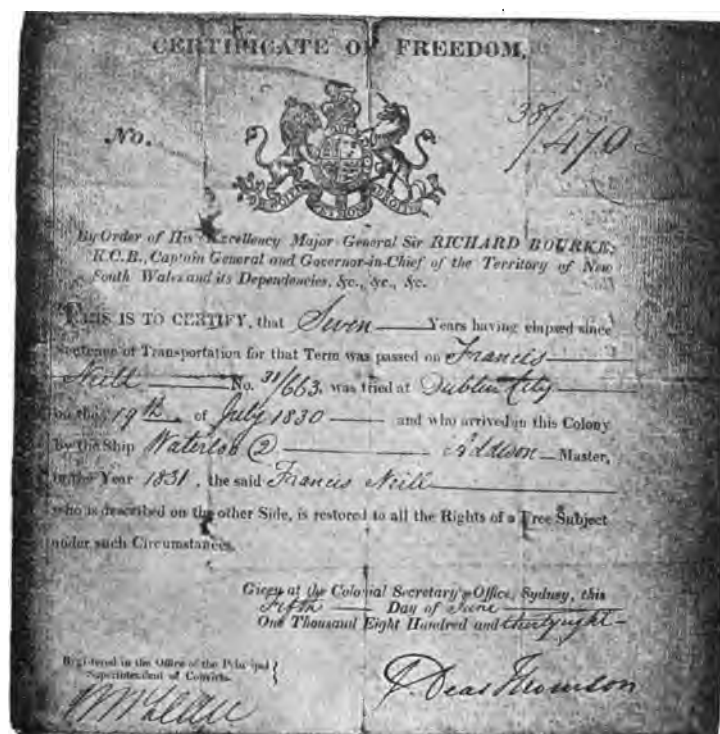 CERTIFICATE OF FREEDOM,
No.
38/470
By Order of His Excellency Major General Sir RICHARD BOURKE,
K.C.B., Captain General and Governor-in-Chief of the Territory of New
South Wales and its Dependencies, &c., &c., &c.
THIS IS TO CERTIFY, that Seven Years having elapsed since
Sentence of Transportation for that Term was passed on Francis
Neill No. 31/663, was tried at Dublin City
on the 19th of July 1830 and who arrived in this Colony
by the Ship Waterloo (2) Addison Master,
in the Year 1831, the said Francis Neill
who is described on the other Side, is restored to all the Rights of a Free Subject
under such Circumstances.
Given at the Colonial Secretary's Office, Sydney, this
Fifth Day of June
One Thousand Eight Hundred and thirty eight
Registered in the Office of the Principal
Superintendent of Convicts.
E. Deas Thomson